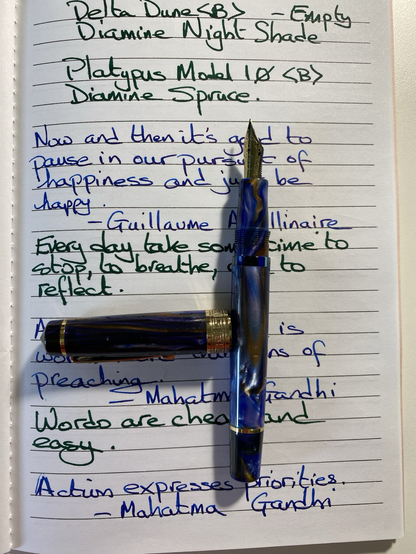 Delta Dune <B> - Empty
Diamine Night Shade
Platypus Model 1Ø <B>
Diamine Spruce.
Now and then it's good to
pause in our pursuit of
happiness and just be
happy.
- Guillaume Apollinaire
Every day take some time to
stop, to breathe, to
reflect.
is
of
preaching.
- Mahatma Gandhi
Words are cheap and
easy.
Action expresses priorities.
- Mahatma Gandhi